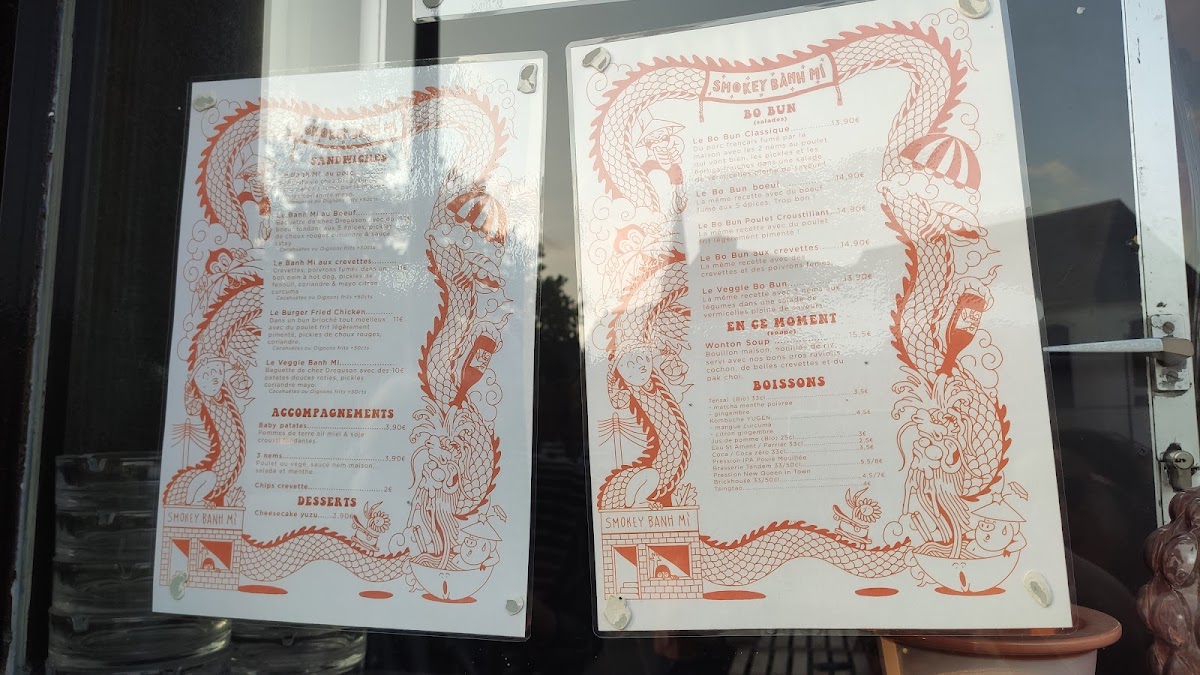 SANDWICHES
Banh Mi au porc
Le Banh Mi au Boeuf
Baguette de chez Dreguson avec du
boeuf fondant aux 5 épices, pickles
de choux rouges, coriandre & sauce
Cacahuètes ou Oignons frits +50cts
Le Banh Mi aux crevettes
Crevettes, poivrons fumés dans un 11€
bol, coin à hot dog, pickles de
fenouil, coriandre & mayo citron
curcuma
Cacahuètes ou Oignons frits +50cts
Le Burger Fried Chicken
Dans un bun brioché tout moelleux 11€
avec du poulet frit légèrement
pimenté, pickles de choux rouges,
coriandre.
Cacahuètes ou Oignons frits +50cts
Le Veggie Banh Mi
Baguette de chez Dreguson avec des 10€
patates douces roties, pickles
coriandre mayo.
Cacahuètes ou Oignons frits +50cts
ACCOMPAGNEMENTS
Baby patates 3,90€
Pommes de terre au miel & soja
croustifondantes.
3 nems 3,90€
Poulet ou végé, sauce nem maison,
salade et menthe.
Chips crevette 2€
DESSERTS
Cheesecake yuzu 3,90€
SMOKEY BANH MI
SMOKEY BÀNH MÌ
BO BUN
(salades)
Le Bo Bun Classique 13,90€
Du porc français fumé par la
maison avec les 2 nems au poulet
qui vont bien, les pickles et les
herbes fraiches dans une salade
de vermicelles pleine de saveurs
Le Bo Bun boeuf 14,90€
La même recette avec du boeuf
fumé aux 5 épices. Trop bon !
Le Bo Bun Poulet Croustillant 14,90€
La même recette avec du poulet
frit légèrement pimenté !
Le Bo Bun aux crevettes 14,90€
La même recette avec des
crevettes et des poivrons fumés.
Le Veggie Bo Bun 13,90€
La même recette avec 3 nems aux
légumes dans une salade de
vermicelles pleine de saveurs
EN CE MOMENT
(soupe)
Wonton Soup 15,5€
Bouillon maison, nouilles de riz
servi avec nos bons gros raviolis
cochon, de belles crevettes et du
pak choï.
BOISSONS
Tensaï (Bio) 33cl 3,5€
- matcha menthe poivrée
- gingembre
Kombucha YUGEN 4,5€
- mangue curcuma
- citron gingembre
Jus de pomme (Bio) 25cl 3€
Eau St Amant / Perrier 33cl 2,5€
Coca / Coca zéro 33cl 3,5€
Pression IPA Poule Mouillée
Brasserie Tandem 33/50cl 5,5/8€
Pression New Queen in Town
Brickhouse 33/50cl 4,5/7€
Tsingtao 4€
SMOKEY BANH MÌ